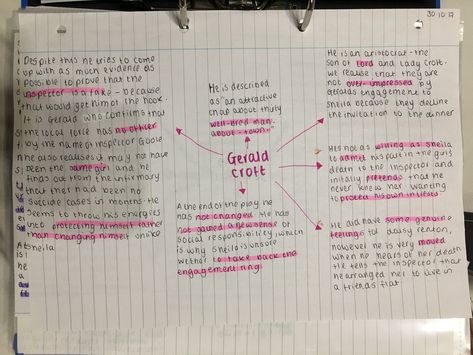 30·10·17
Despite this he tries to come
up with as much evidence as
possible to prove that the
inspector is a fake - because
that would get him of the hook.
It is Gerald who confirms that
the local force has no officer
by the name of inspector Goole
he also realises it may no have
been the same girl and he
finds out from the infirmary
that ther had been no
suicide cases in months. He
seems to throw his energies
into protecting himself rather
than changing himself unlike
sheila
He is described
as "an attractive
chap about thirty
well-bred man-
about-town"
Gerald
croft
A the end of the play he
has not changed. He has
not gained a new sense of
social responsibility, which
is why sheila is unsure
wether to take back the
engagement ring.
He is an aristocrat - the
son of lord and lady croft.
we realise that they are
not over-impressed by
Geralds engagement to
sheila because they decline
the invitation to the dinner
He's not as willing as sheila
to admit his part in the girls
death to the inspector and
initially pretends that he
never knew her. wanting
to protect his own intrests
He did have some genuine
feelings for daisy renton,
however he is very moved
when he hears of her death
He tells the inspector that
he arranged her to live in
a friends flat